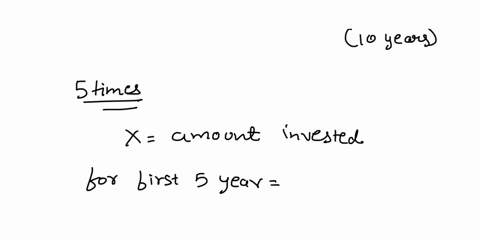 (10 years)
5 times
X = amount invested
for first 5 year =